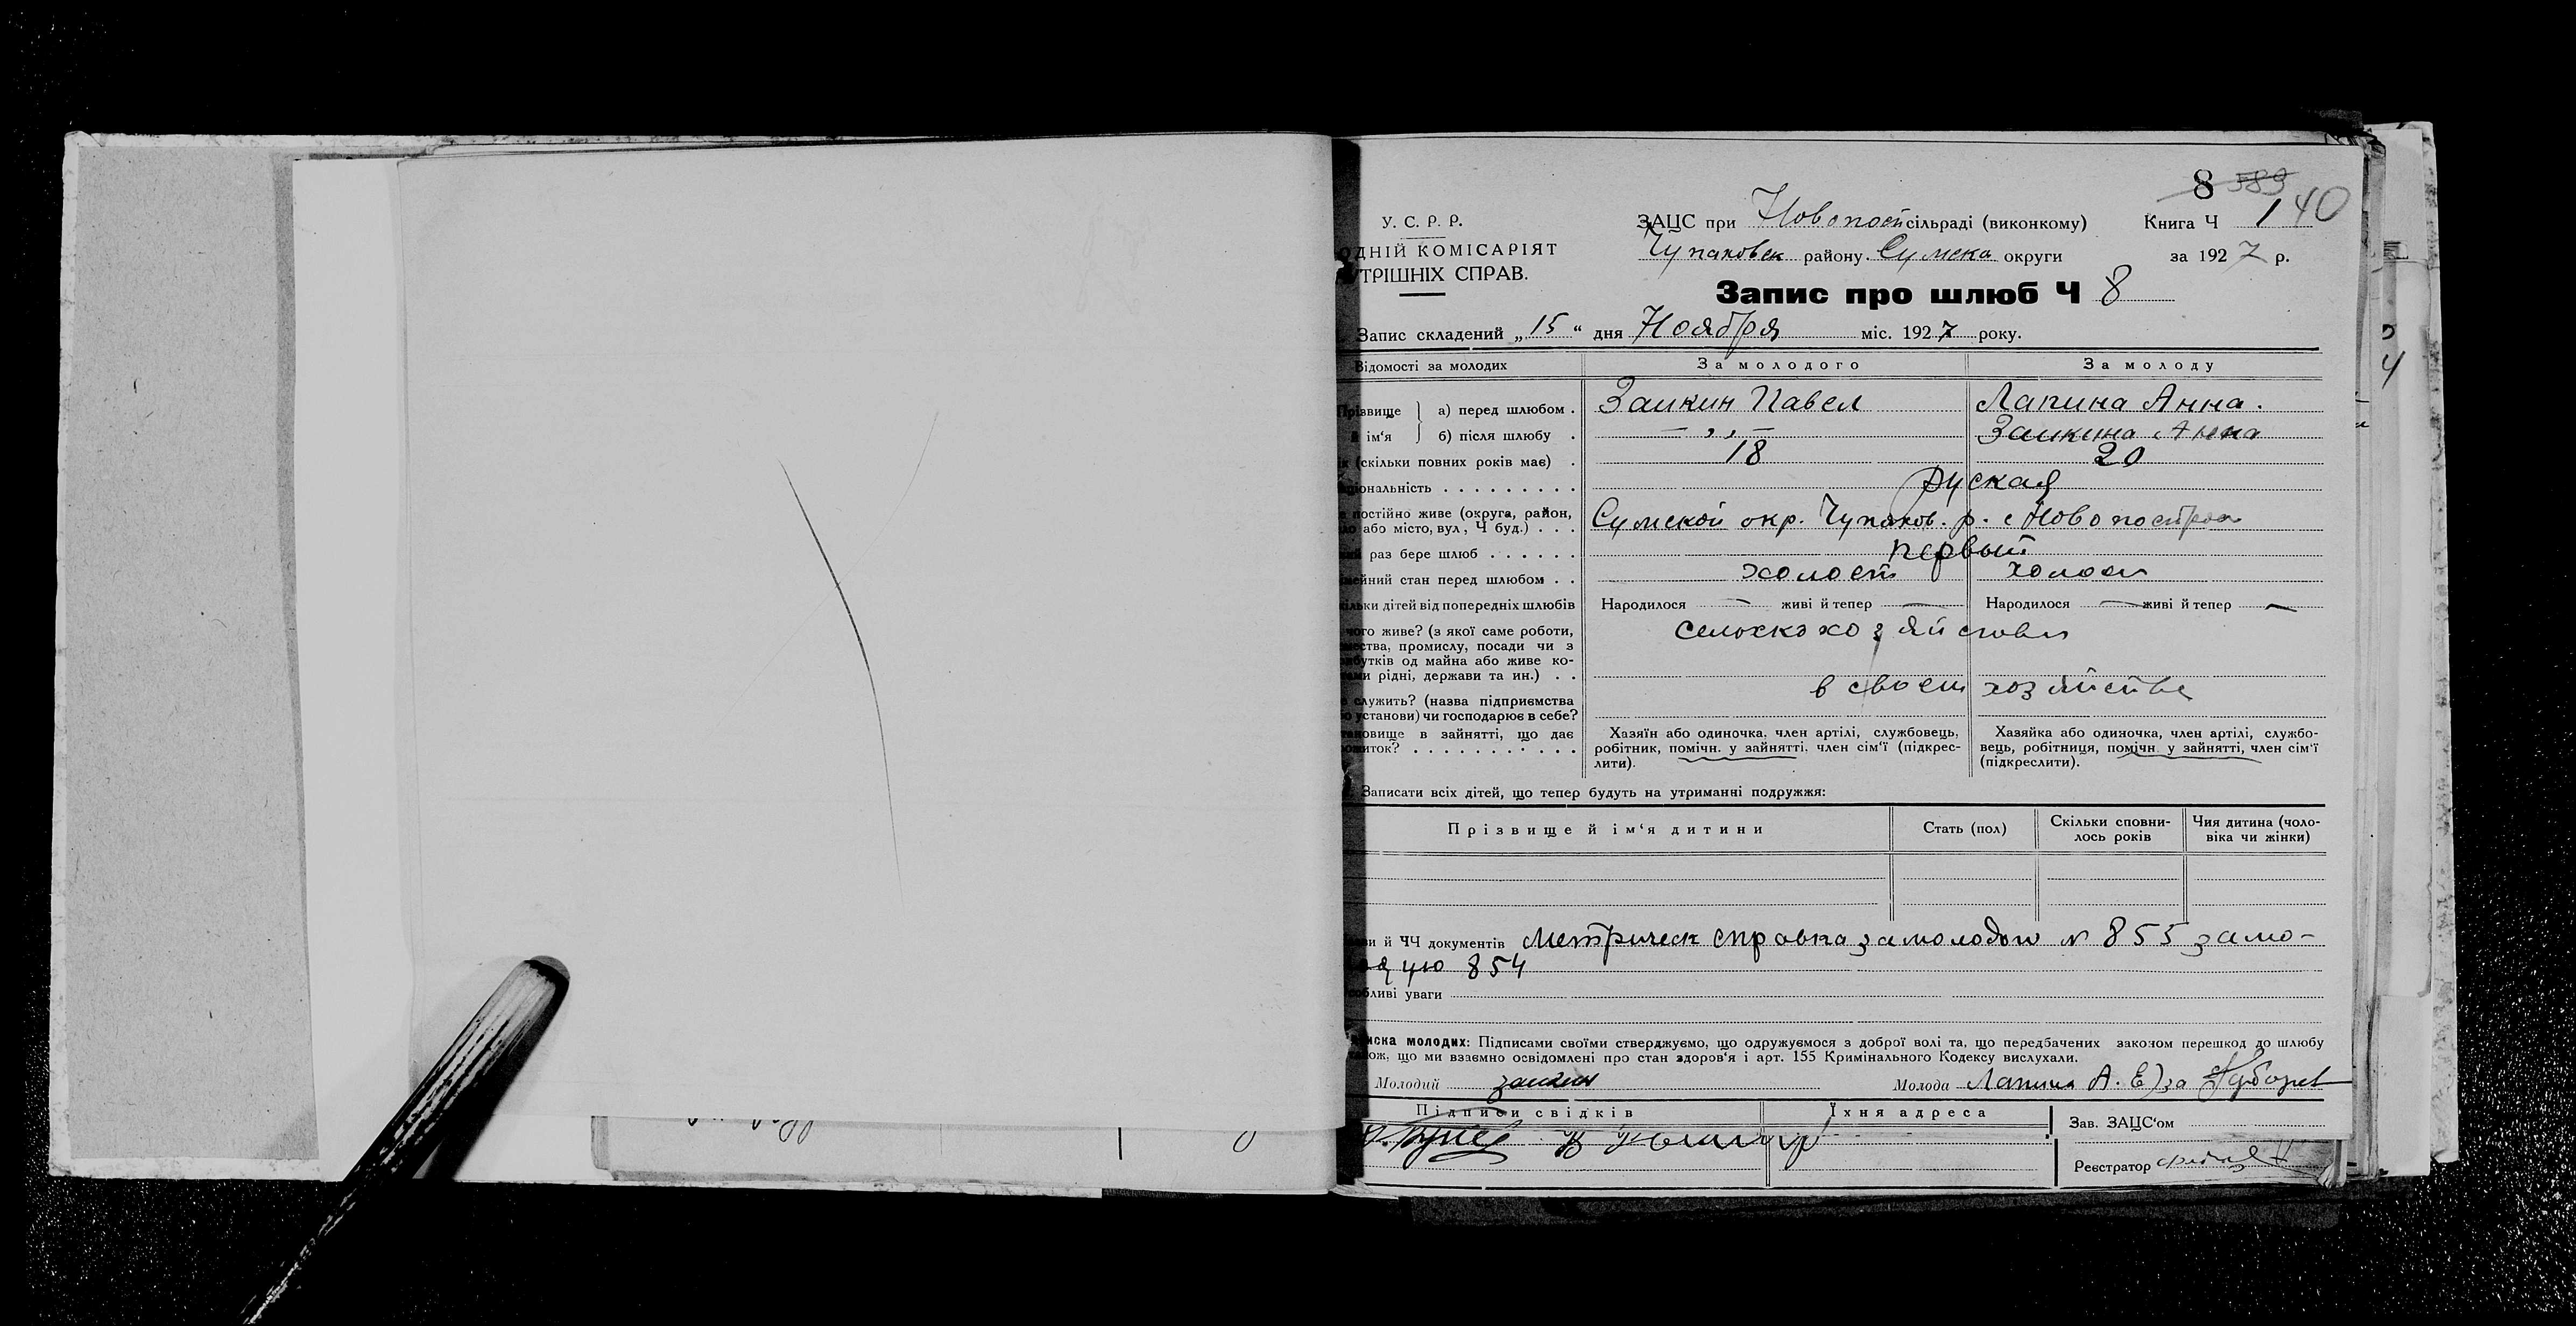 8 589 40
У. С. Р. Р.
ОДНІЙ КОМІСАРІЯТ
УТРІШНІХ СПРАВ.
ЗАЦС при Новопост сільраді (виконкому) Книга Ч 1
Чупаховск району Сумска округи за 1927 р.
Запис про шлюб Ч 8
Запис складений „15“ дня Ноября міс. 1927 року.
Відомості за молодих За молодого За молоду
Прізвище а) перед шлюбом . Заикин Павел Лапина Анна.
й ім‘я б) після шлюбу . — „ — Заикина Анна
ік (скільки повних років має) . 18 20
ціональність . . . . . . . . . руская
постійно живе (округа, район,
або місто, вул, Ч буд.) . . . Сумской окр. Чупахов. р. с Новопострои
раз бере шлюб . . . . . . первый
мейний стан перед шлюбом . . холост холост
ільки дітей від попередніх шлюбів Народилося — живі й тепер — Народилося — живі й тепер —
чого живе? (з якої саме роботи,
ества, промислу, посади чи з
бутків од майна або живе ко-
ми рідні, держави та ин.) . .
служить? (назва підприємства
установи) чи господарює в себе?
в своем хозяйстве
ановище в зайнятті, що дає
житок? . . . . . . . . . . .
Хазяїн або одиночка, член артілі, службовець,
робітник, помічн. у зайнятті, член сім‘ї (підкрес-
лити).
Хазяйка або одиночка, член артілі, службо-
вець, робітниця, помічн. у зайнятті, член сім‘ї
(підкреслити).
Записати всіх дітей, що тепер будуть на утриманні подружжя:
Прізвище й ім‘я дитини Стать (пол) Скільки сповни-
лось років Чия дитина (чоло-
віка чи жінки)
ви й ЧЧ документів Метрическ справка за молодого № 855 за мо-
дую 854
собливі уваги
иска молодих: Підписами своїми стверджуємо, що одружуємося з доброї волі та, що передбачених законом перешкод до шлюбу
кож, що ми взаємно освідомлені про стан здоров‘я і арт. 155 Кримінального Кодексу вислухали.
Молодий Заикин Молода Лапина А. Е) за
Підписи свідків Їхня адреса
Зав. ЗАЦС‘ом
Реєстратор